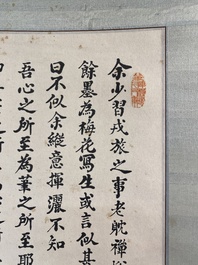 余少習戎旅之事老耽禪
餘墨為梅花寫生或言似甚
曰不似余縱意揮灑不知
吾心之所至為筆之所至耶